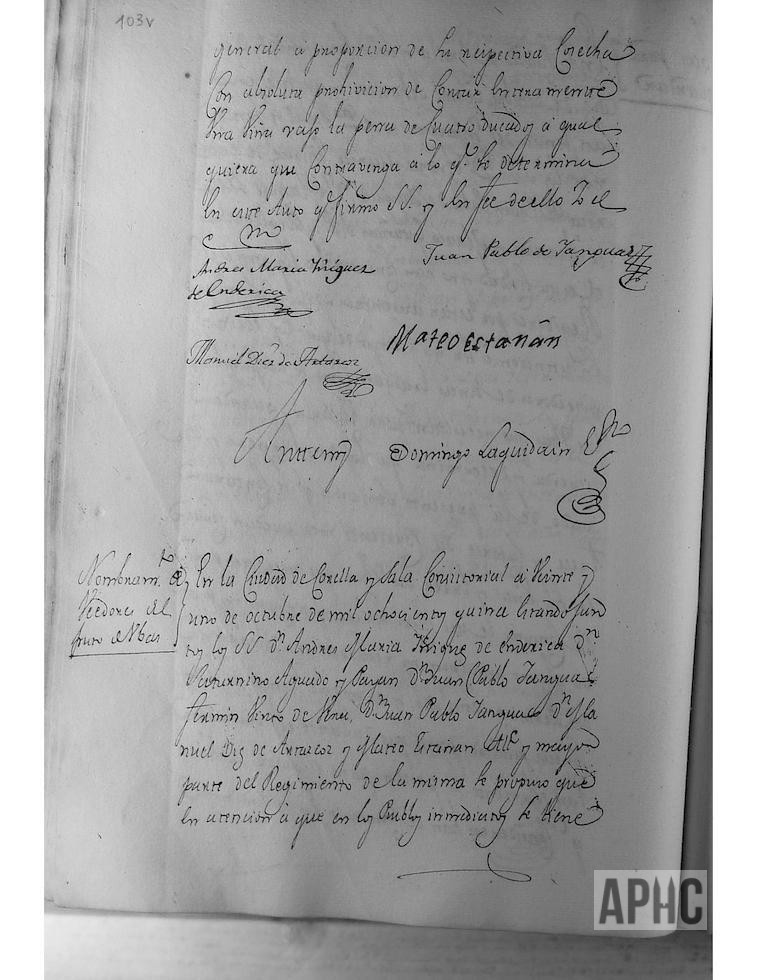 103v
general a proporcion de la respectiva Cosecha
Con absoluta prohivicion de Contar Internamente
Uva Viña vajo la pena de Cuatro ducados a qual
quiera que Contravenga a lo q.e se determina
En este Auto q.e firmo SS. y En fee de ello Yo el
Andres Maria Yñiguez
de Enderica
Juan Pablo de Sanguas
Mateo Estañán
Manuel Diez de Antazcoz
Antemi Domingo Laquidain
Nombram.to de
Veedores del
fruto de Ubas
En la Ciudad de Corella y Sala Consistorial a Veinte y
uno de octubre de mil ochocientos quince Estando Jun
tos los SS. d.n Andres Maria Yñiguez de Enderica d.n
Saturnino Aguado y Payan d.n Juan Pablo Sanguas
Fermin Virto de Vera, d.n Juan Pablo Sanguas d.n Ma
nuel Diez de Antazcoz y Mateo Estañan Alc.e y mayor
parte del Regimiento de la misma se propuso que
En atencion a que en los Pueblos inmediatos se tiene
APHC